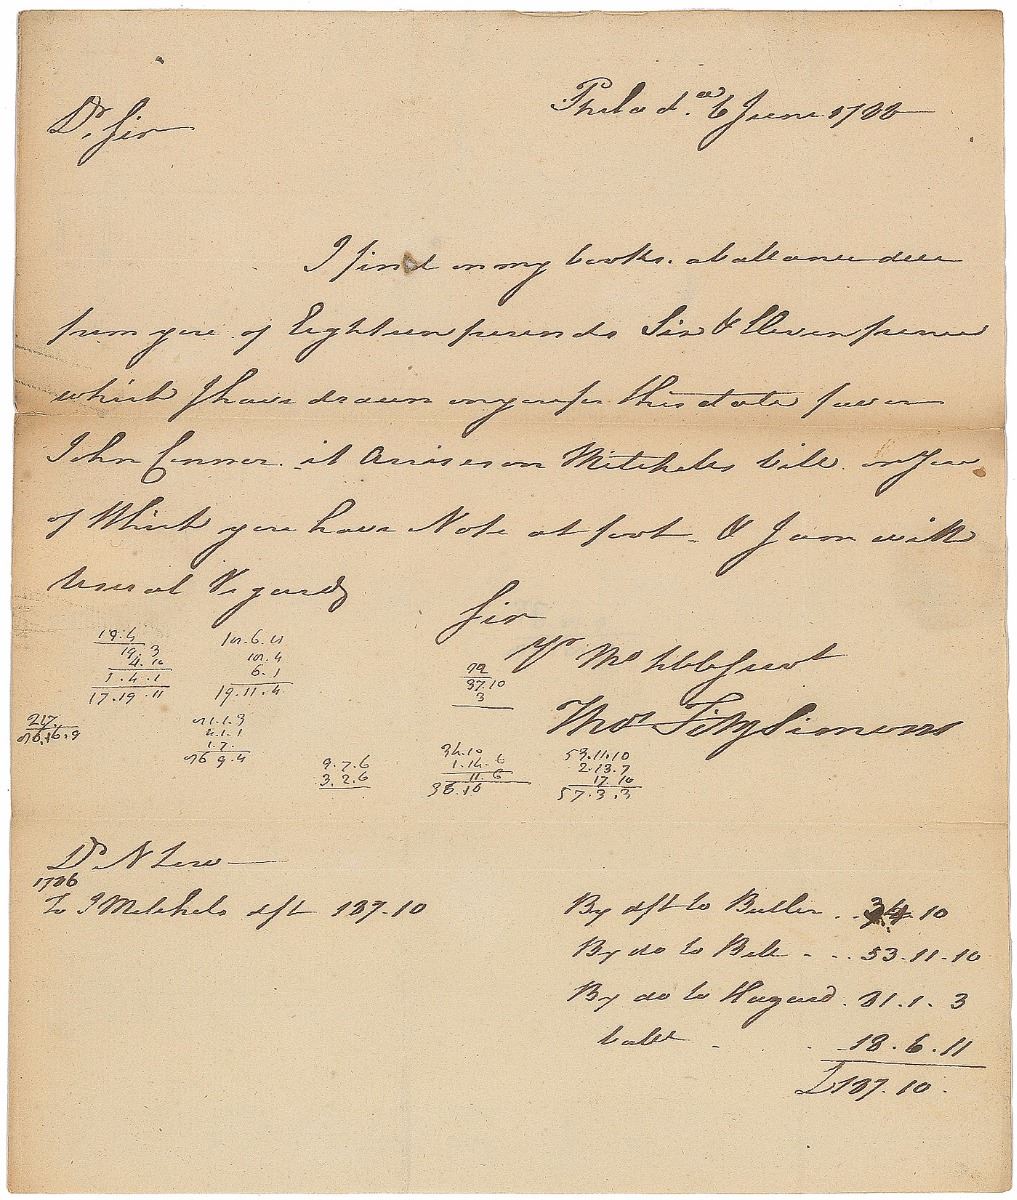 Philad.a 6 June 1788
Dr. Sir
I find on my books. a ballance due
from you of Eighteen pounds Six & Eleven pence
which I have drawn on you for this date favor
John Connor. it Arises on Mitchels bill on You
of Which you have Note at foot. & I am with
Usual Regards
Sir
Yr Mo hble Servt
Thos FitzSimons
19.4
19.3
4.10
1.4.1
17.19.11
6.1
19.11.4
92
37.10
3
217
1.7
9.7.6
3.2.6
34.10
1.14.6
11.6
36.16
53.11.10
2.13.7
17.10
57.3.3
Dr. N Low
1786
To J Mitchels dft 137.10
By dft to Butler .. 34.10
By do to Bell - .. 53.11.10
By do to Hazard . 31.1.3
balle . . . 18.6.11
£137.10.